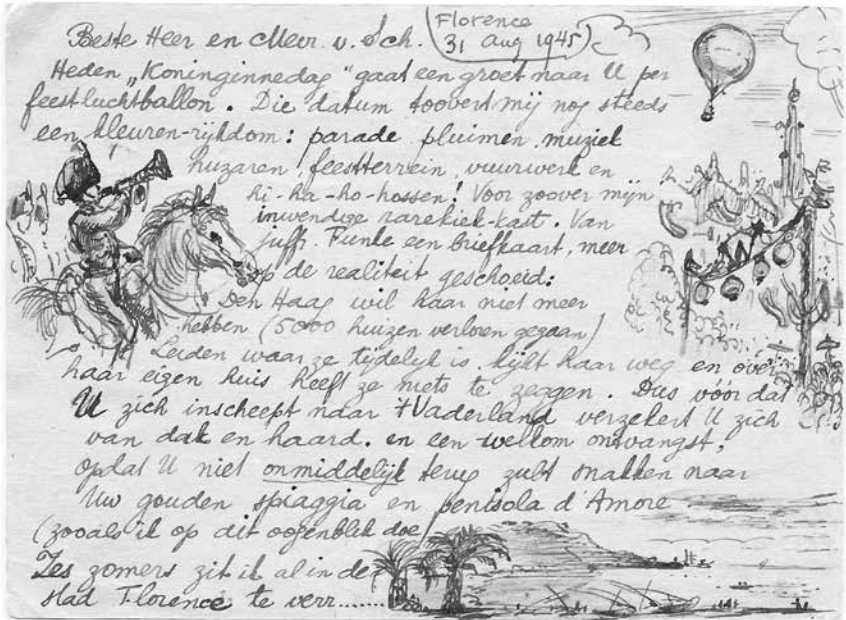 Florence
31 Aug 1945
Beste Heer en Mevr. v. Sch.
Heden „Koninginnedag" gaat een groet naar U per
feestluchtballon. Die datum toovert mij nog steeds
een kleuren-rijkdom: parade, pluimen, muziek
huzaren, feestterrein, vuurwerk en
hi-ha-ho-hossen! Voor zoover mijn
inwendige rarekiek-kast. Van
juffr. Funke een briefkaart, meer
op de realiteit geschoeid:
Den Haag wil haar niet meer
hebben (5000 huizen verloren gegaan)
Leiden waar ze tijdelijk is, kijkt haar weg en over
haar eigen huis heeft ze niets te zeggen. Dus vóór dat
U zich inscheept naar 't Vaderland verzekert U zich
van dak en haard. en een welkom ontvangst,
opdat U niet onmiddelijk terug zult snakken naar
Uw gouden spiaggia en penisola d'Amore
(zooals ik op dit oogenblik doe)
Zes zomers zit ik al in de
stad Florence te verr........